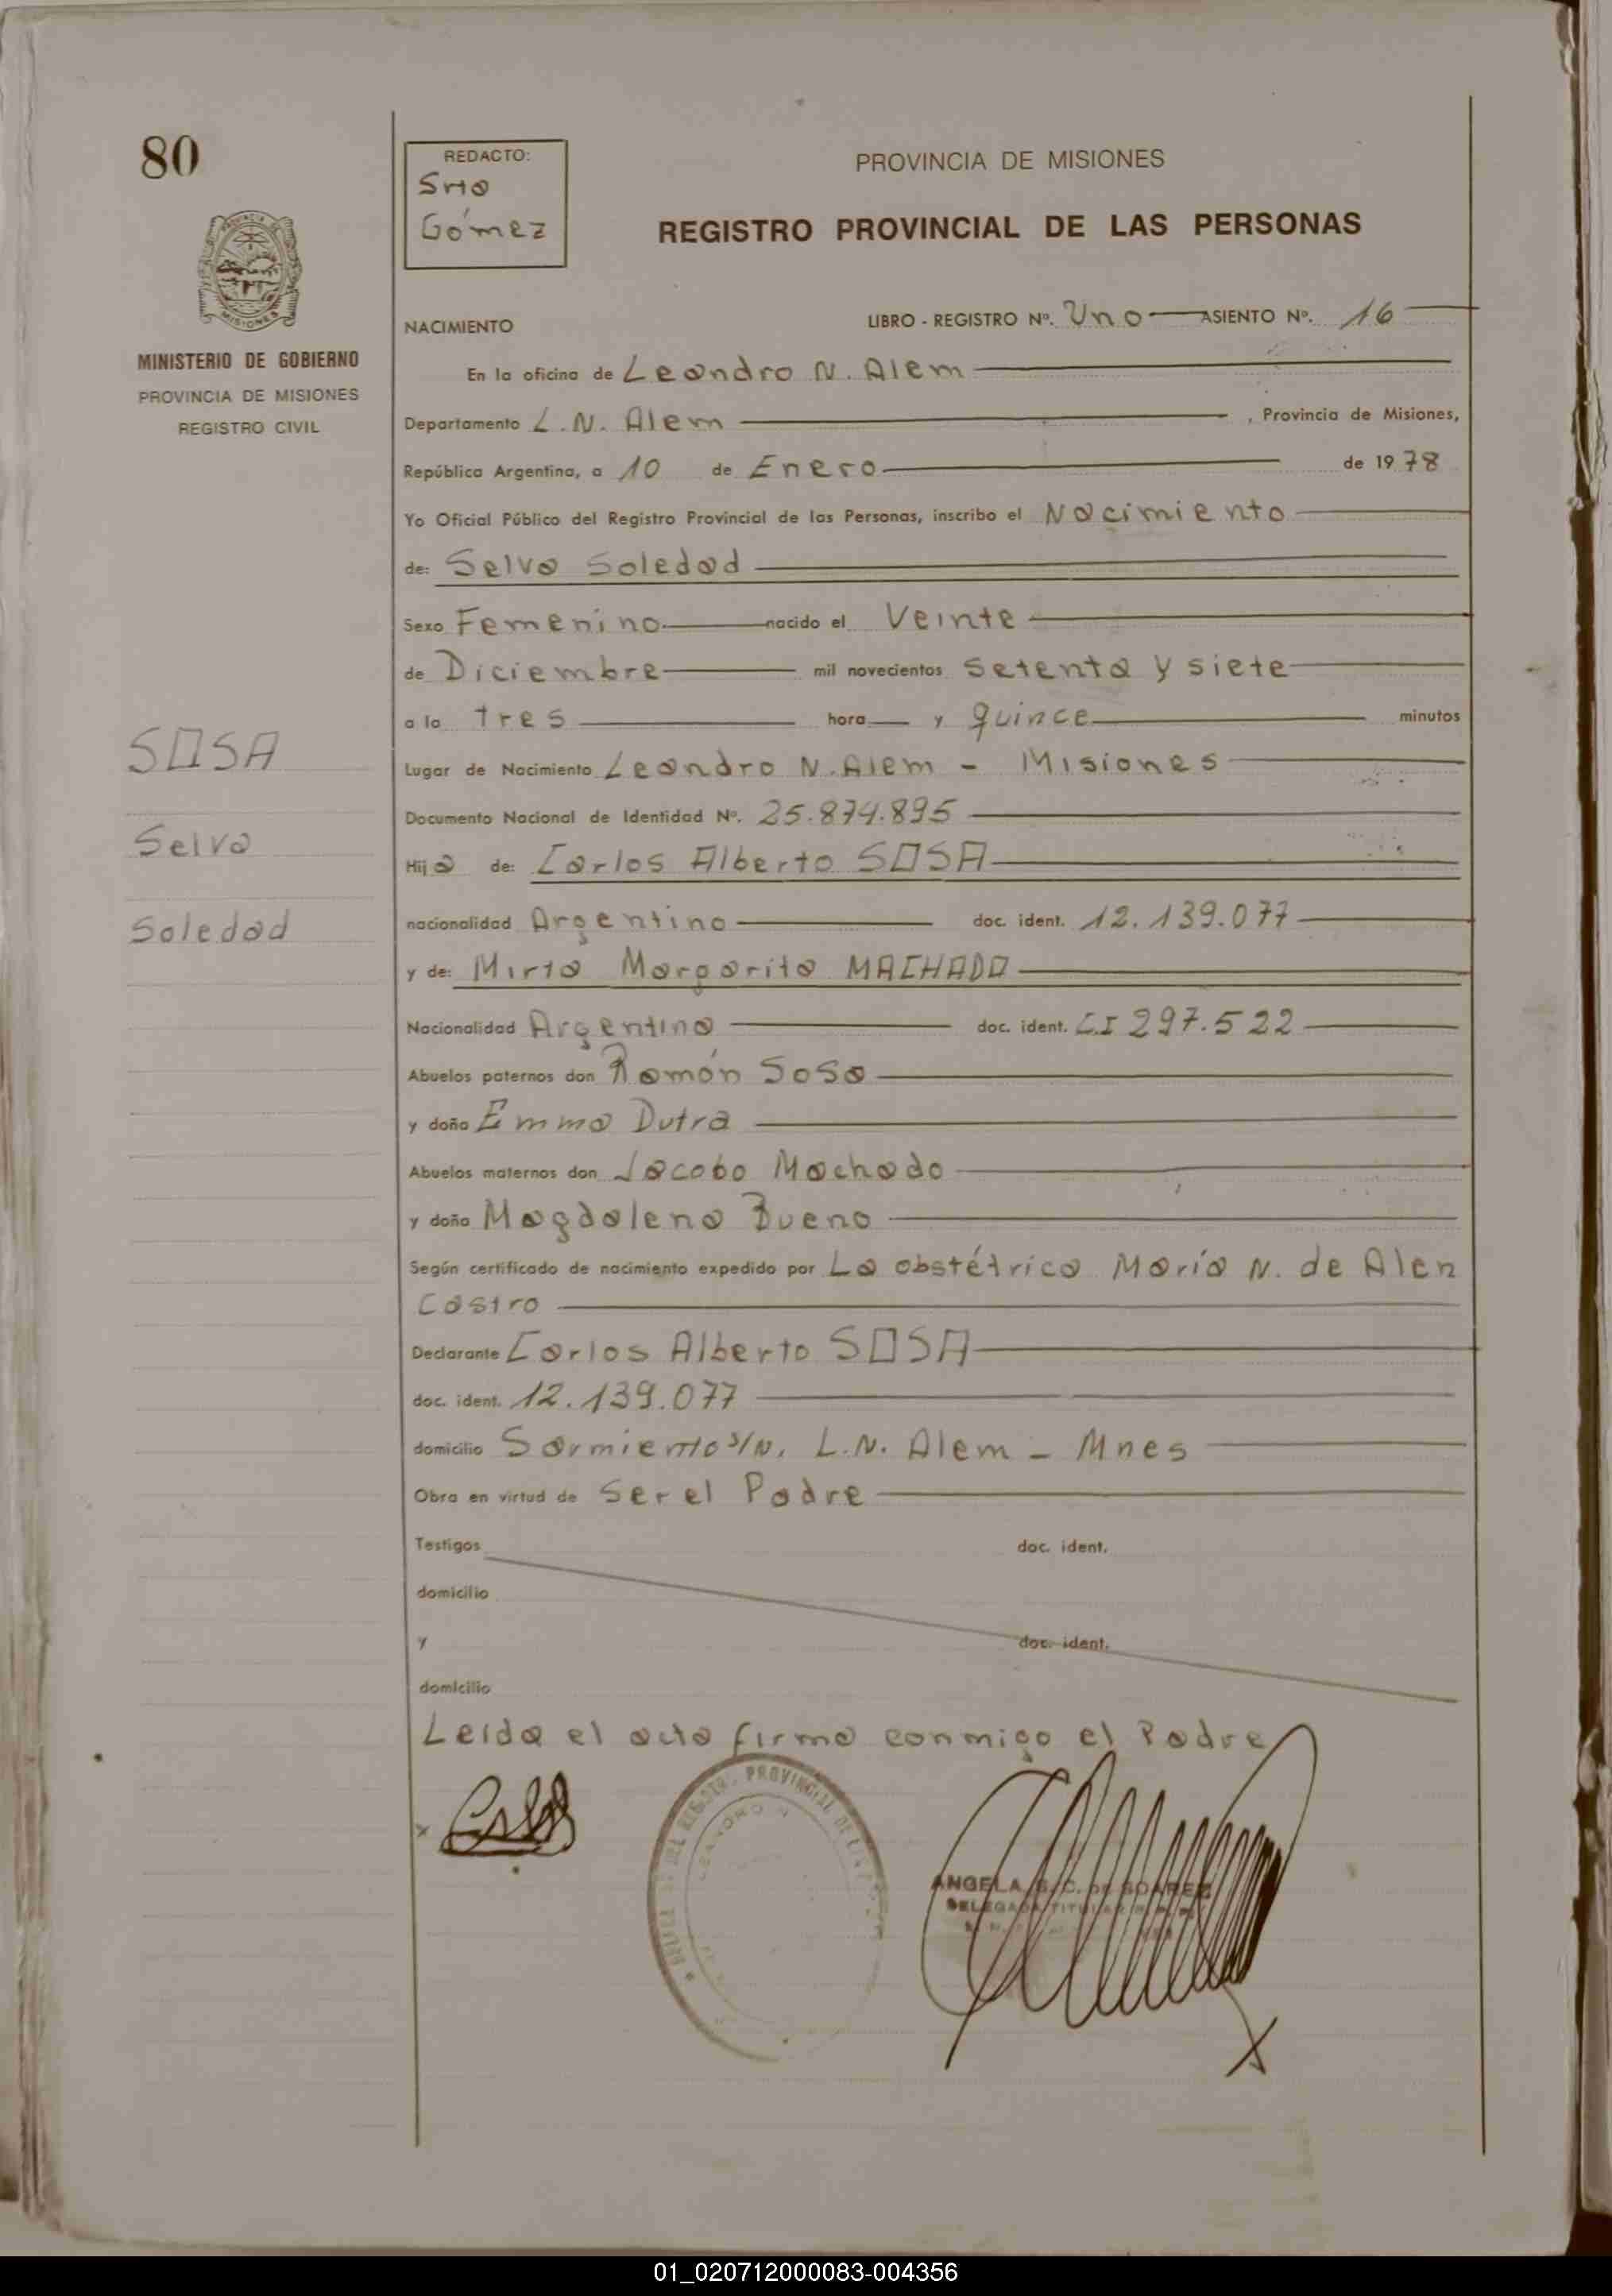 80
REDACTO:
Srta
Gómez
PROVINCIA DE MISIONES
REGISTRO PROVINCIAL DE LAS PERSONAS
MISIONES
MINISTERIO DE GOBIERNO
PROVINCIA DE MISIONES
REGISTRO CIVIL
NACIMIENTO
LIBRO - REGISTRO Nº. Uno ASIENTO Nº. 16
En la oficina de Leandro N. Alem
Departamento L. N. Alem , Provincia de Misiones,
República Argentina, a 10 de Enero de 1978
Yo Oficial Público del Registro Provincial de las Personas, inscribo el Nacimiento
de: Selva Soledad
Sexo Femenino nacido el Veinte
de Diciembre mil novecientos Setenta y siete
a la tres hora y quince minutos
SOSA
Lugar de Nacimiento Leandro N. Alem - Misiones
Documento Nacional de Identidad Nº. 25.874.895
Selva
Hija de: Carlos Alberto SOSA
nacionalidad Argentino doc. ident. 12.139.077
Soledad
y de: Mirta Margarita MACHADO
Nacionalidad Argentina doc. ident. C.I 297.522
Abuelos paternos don Ramón Sosa
y doña Emma Dutra
Abuelos maternos don Jacobo Machado
y doña Magdalena Bueno
Según certificado de nacimiento expedido por La obstétrica María N. de Alen
Castro
Declarante Carlos Alberto SOSA
doc. ident. 12.139.077
domicilio Sarmiento s/N. L.N. Alem - Mnes
Obra en virtud de Ser el Padre
Testigos doc. ident.
domicilio
y doc. ident.
domicilio
Leida el acta firma conmigo el Padre
PROVINCIAL DE
ANGELA S. C. DE SOAREZ
DELEGADA TITULAR
01_020712000083-004356